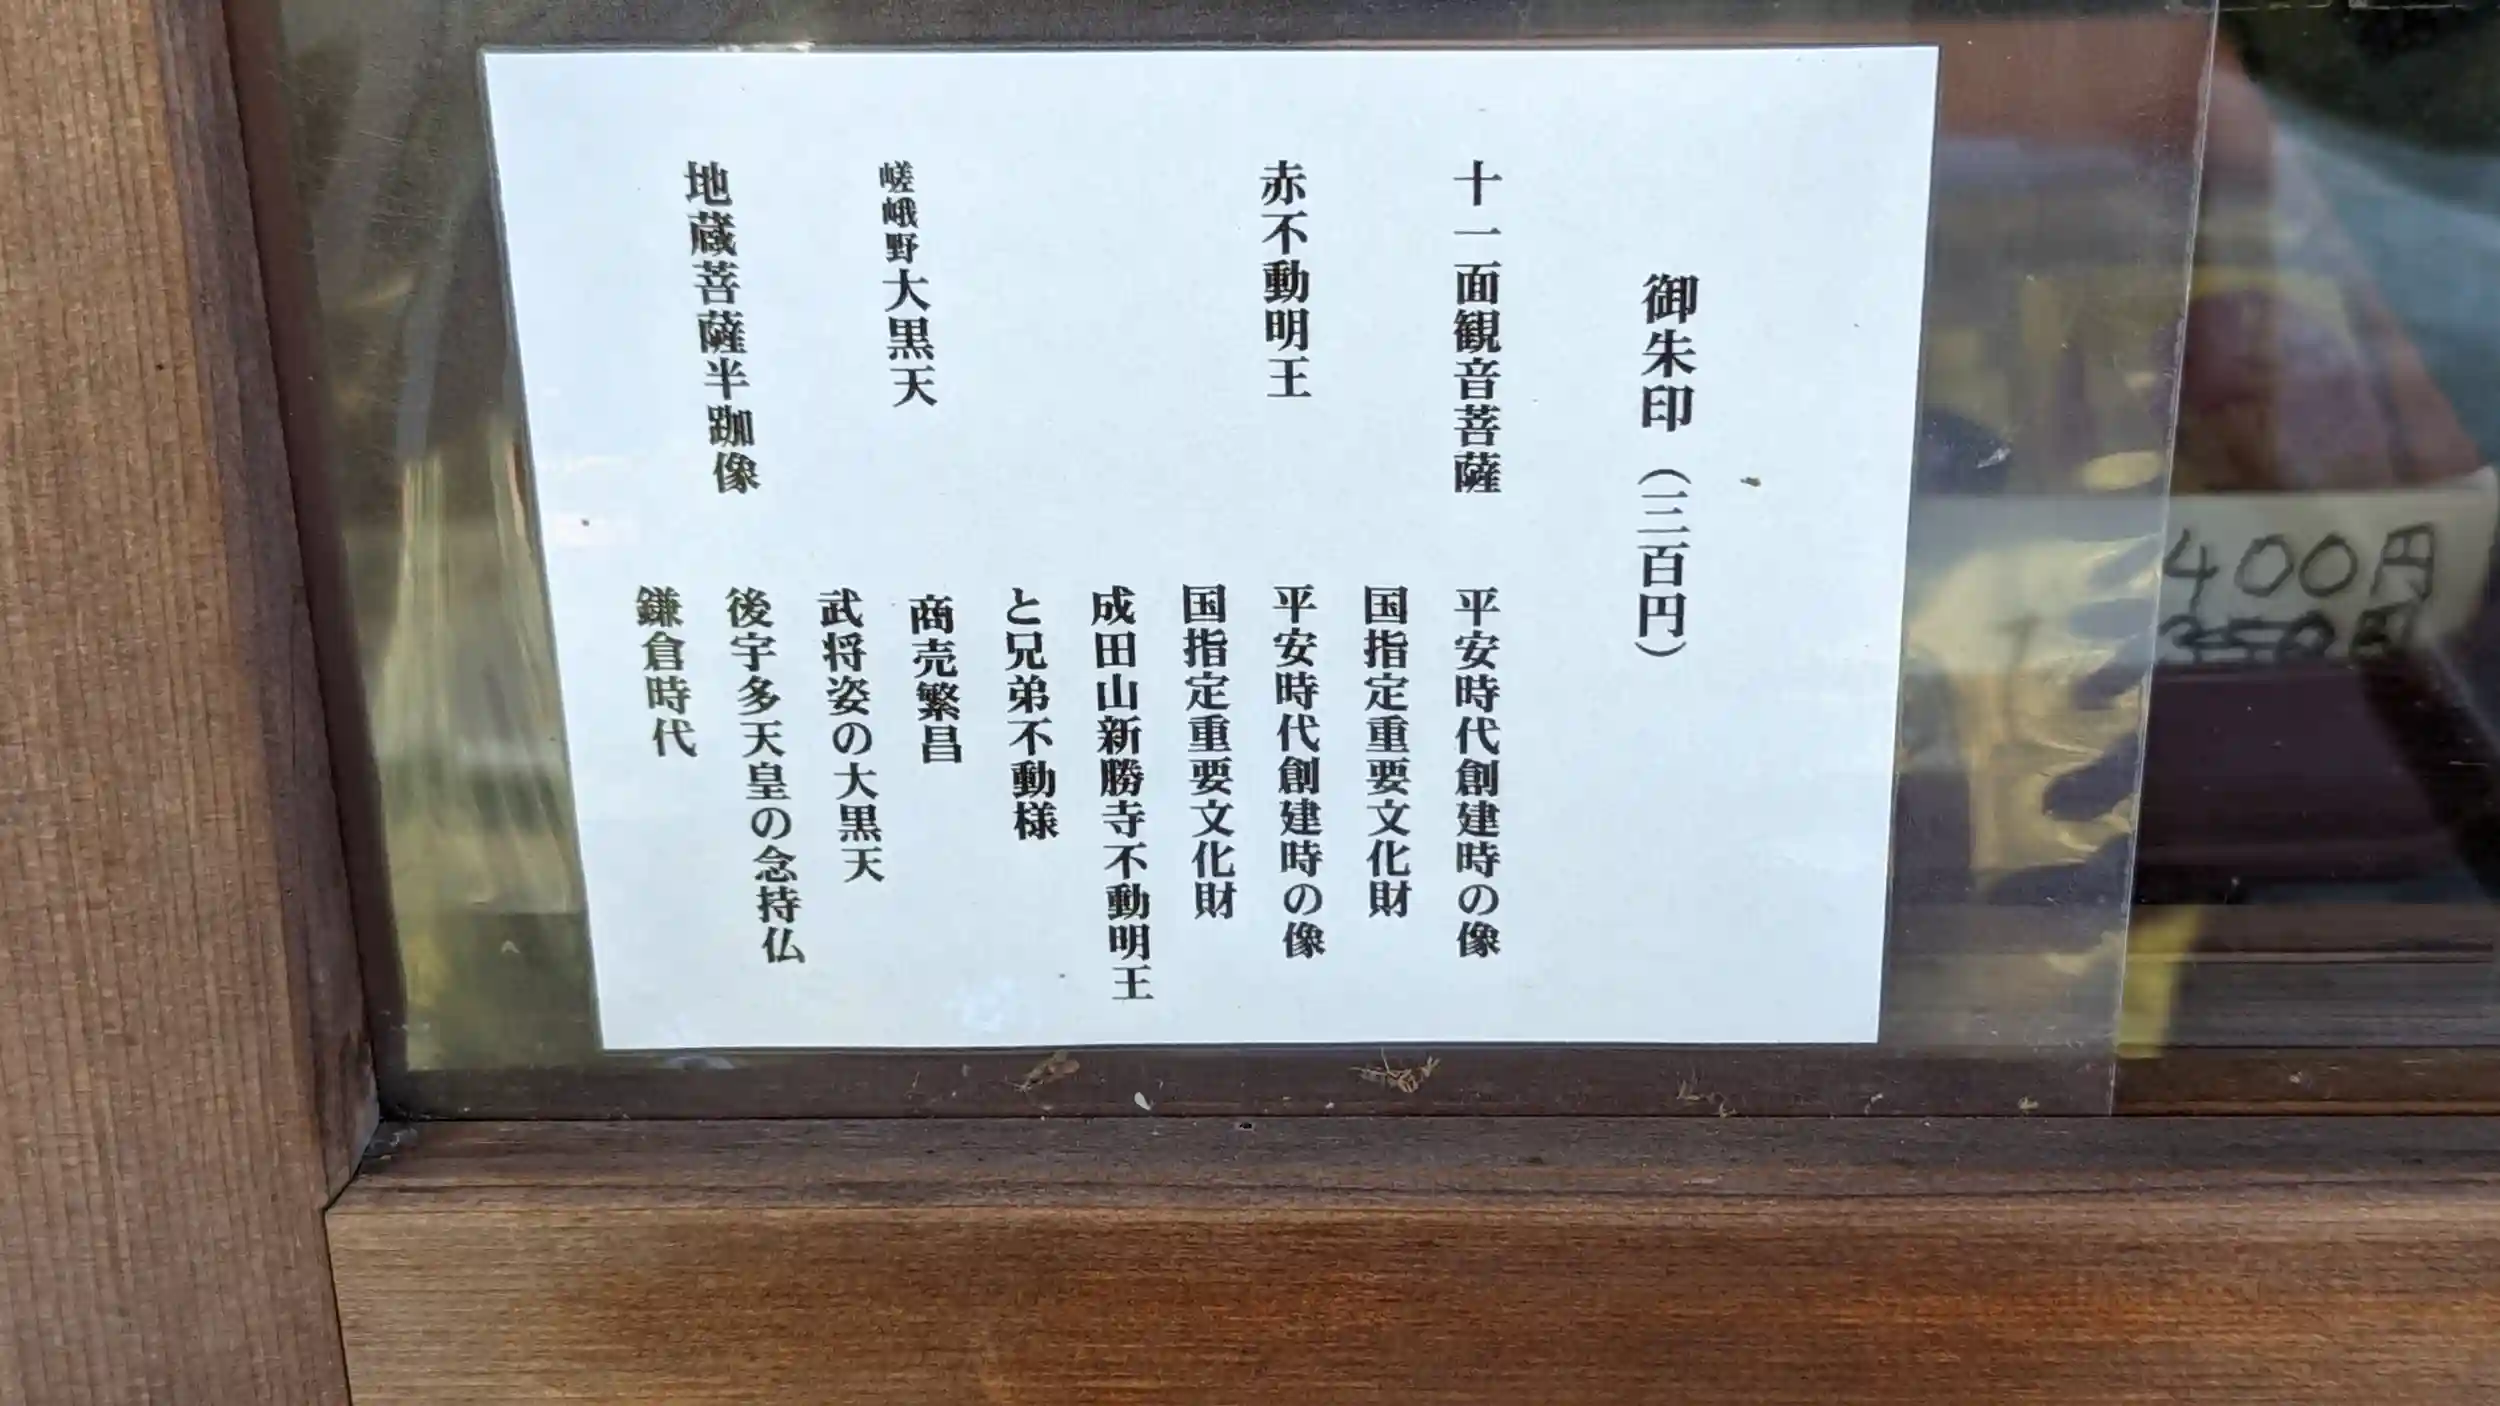 御朱印（三百円）
十一面観音菩薩
平安時代創建時の像
国指定重要文化財
赤不動明王
平安時代創建時の像
国指定重要文化財
成田山新勝寺不動明王
と兄弟不動様
嵯峨野大黒天
商売繁昌
武将姿の大黒天
地蔵菩薩半跏像
後宇多天皇の念持仏
鎌倉時代
400円
350円